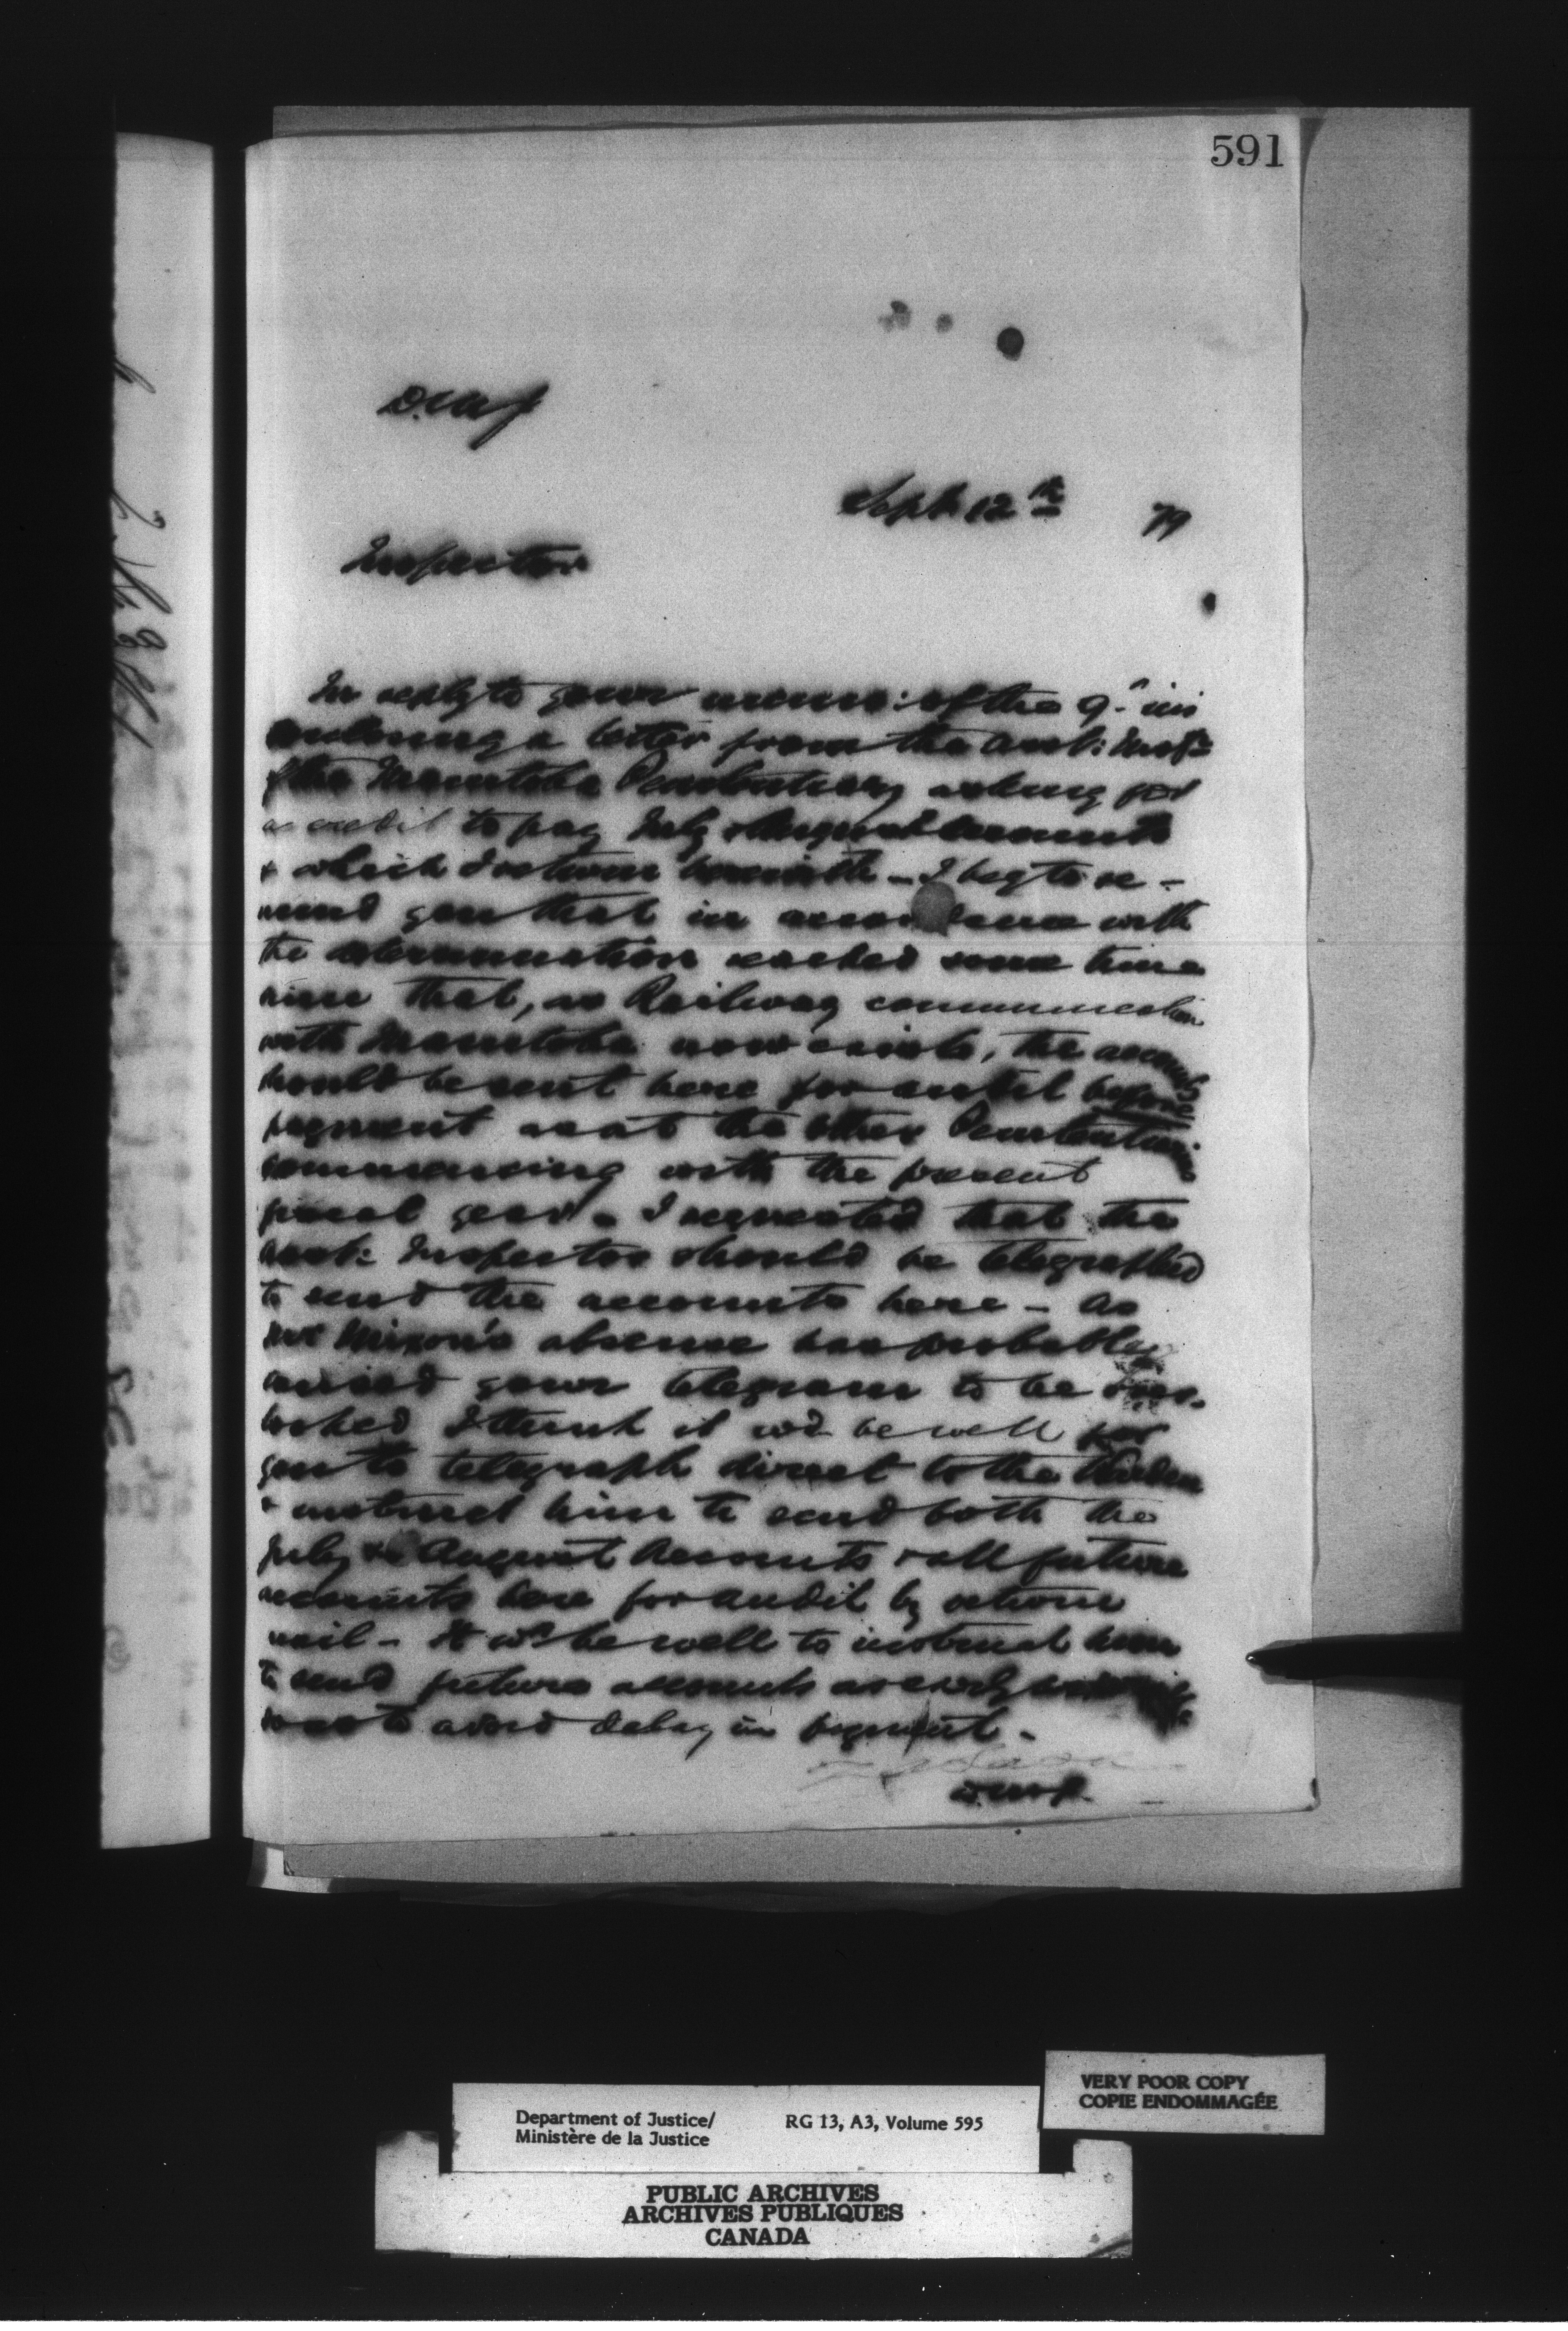 591
Sept 12th 79
Inspector
In reply to your memo: of the 9th ins
enclosing a letter from the Asst: Inspr
of the Manitoba Penitentiary asking for
a credit to pay July & August accounts
& which I return herewith - I beg to re-
mind you that in accordance with
the determination reached some time
since that, as Railway communication
with Manitoba now exists, the accounts
should be sent here for audit before
payment as at the other Penitentiaries
commencing with the present
fiscal year - I requested that the
Asst: Inspector should be telegraphed
to send the accounts here - As
Mr Nixon's absence has probably
caused your telegram to be over-
looked I think it wd be well for
you to telegraph direct to the Warden
& instruct him to send both the
July & August Accounts & all future
accounts here for audit by return
mail - It wd be well to instruct him
to send future accounts as early as
so as to avoid delay in payment -
VERY POOR COPY
COPIE ENDOMMAGÉE
Department of Justice/ RG 13, A3, Volume 595
Ministère de la Justice
PUBLIC ARCHIVES
ARCHIVES PUBLIQUES
CANADA